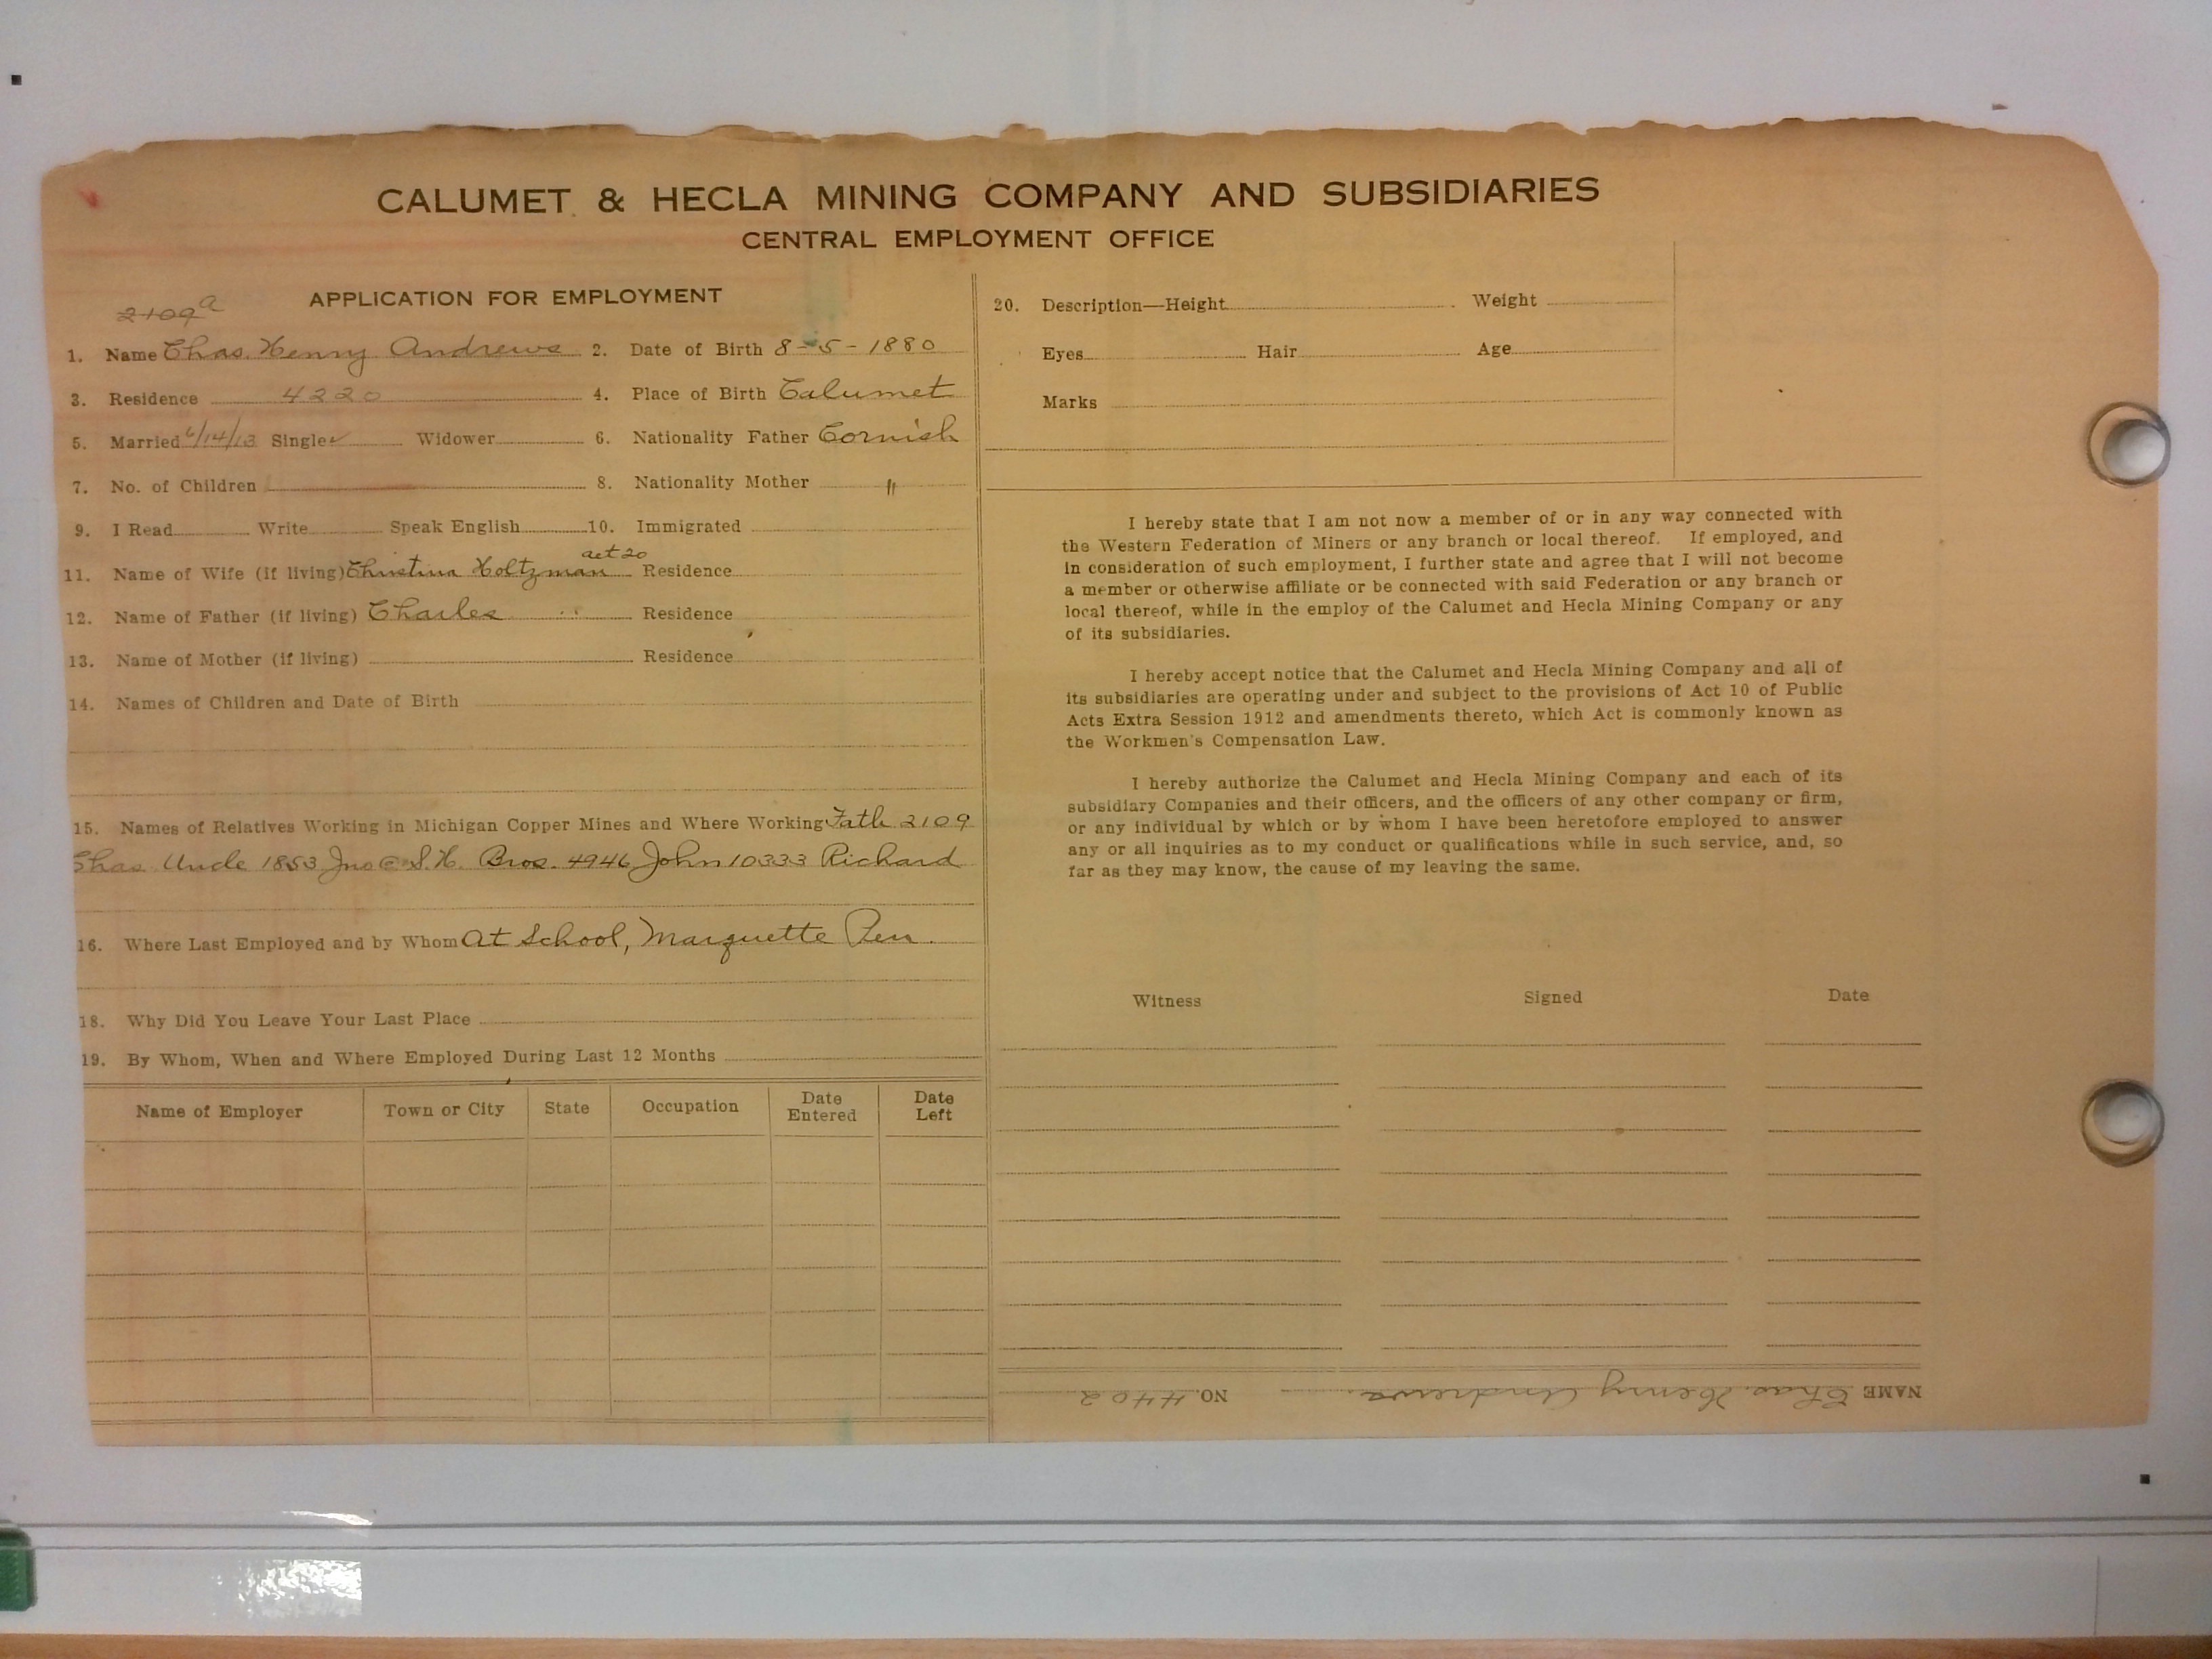 CALUMET & HECLA MINING COMPANY AND SUBSIDIARIES
CENTRAL EMPLOYMENT OFFICE
APPLICATION FOR EMPLOYMENT
2109 a
1. Name Chas. Henry Andrews 2. Date of Birth 8-5-1880
3. Residence 4220 4. Place of Birth Calumet
5. Married 6/14/13 Single ✓ Widower 6. Nationality Father Cornish
7. No. of Children 8. Nationality Mother "
9. I Read Write Speak English 10. Immigrated
aet 20
11. Name of Wife (if living) Christina Holtzman Residence
12. Name of Father (if living) Charles Residence
13. Name of Mother (if living) Residence
14. Names of Children and Date of Birth
15. Names of Relatives Working in Michigan Copper Mines and Where Working Fath 2109
Chas. Uncle 1853 Jno @ S.H. Bros. 4946 John 10333 Richard
16. Where Last Employed and by Whom At School, Marquette Pen.
18. Why Did You Leave Your Last Place
19. By Whom, When and Where Employed During Last 12 Months
Name of Employer Town or City State Occupation Date Entered Date Left
20. Description—Height Weight
Eyes Hair Age
Marks
I hereby state that I am not now a member of or in any way connected with
the Western Federation of Miners or any branch or local thereof. If employed, and
in consideration of such employment, I further state and agree that I will not become
a member or otherwise affiliate or be connected with said Federation or any branch or
local thereof, while in the employ of the Calumet and Hecla Mining Company or any
of its subsidiaries.
I hereby accept notice that the Calumet and Hecla Mining Company and all of
its subsidiaries are operating under and subject to the provisions of Act 10 of Public
Acts Extra Session 1912 and amendments thereto, which Act is commonly known as
the Workmen's Compensation Law.
I hereby authorize the Calumet and Hecla Mining Company and each of its
subsidiary Companies and their officers, and the officers of any other company or firm,
or any individual by which or by whom I have been heretofore employed to answer
any or all inquiries as to my conduct or qualifications while in such service, and, so
far as they may know, the cause of my leaving the same.
Witness Signed Date
NAME Chas. Henry Andrews. NO. 4402